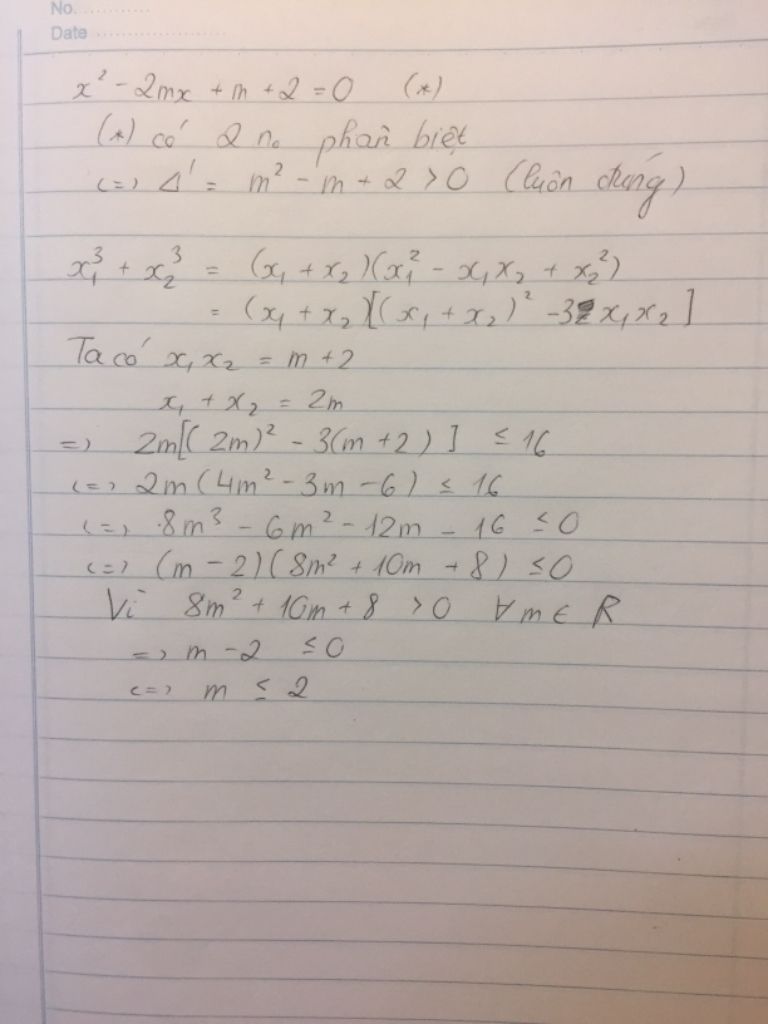 No.............
Date ........................
x² - 2mx + m + 2 = 0 (*)
(*) có 2 no phân biệt
<=> Δ' = m² - m + 2 > 0 (luôn đúng)
x₁³ + x₂³ = (x₁ + x₂)(x₁² - x₁x₂ + x₂²)
= (x₁ + x₂)[(x₁ + x₂)² - 3x₁x₂]
Ta có x₁x₂ = m + 2
x₁ + x₂ = 2m
=> 2m[(2m)² - 3(m + 2)] ≤ 16
<=> 2m(4m² - 3m - 6) ≤ 16
<=> 8m³ - 6m² - 12m - 16 ≤ 0
<=> (m - 2)(8m² + 10m + 8) ≤ 0
Vì 8m² + 10m + 8 > 0 ∀ m ∈ R
=> m - 2 ≤ 0
<=> m ≤ 2